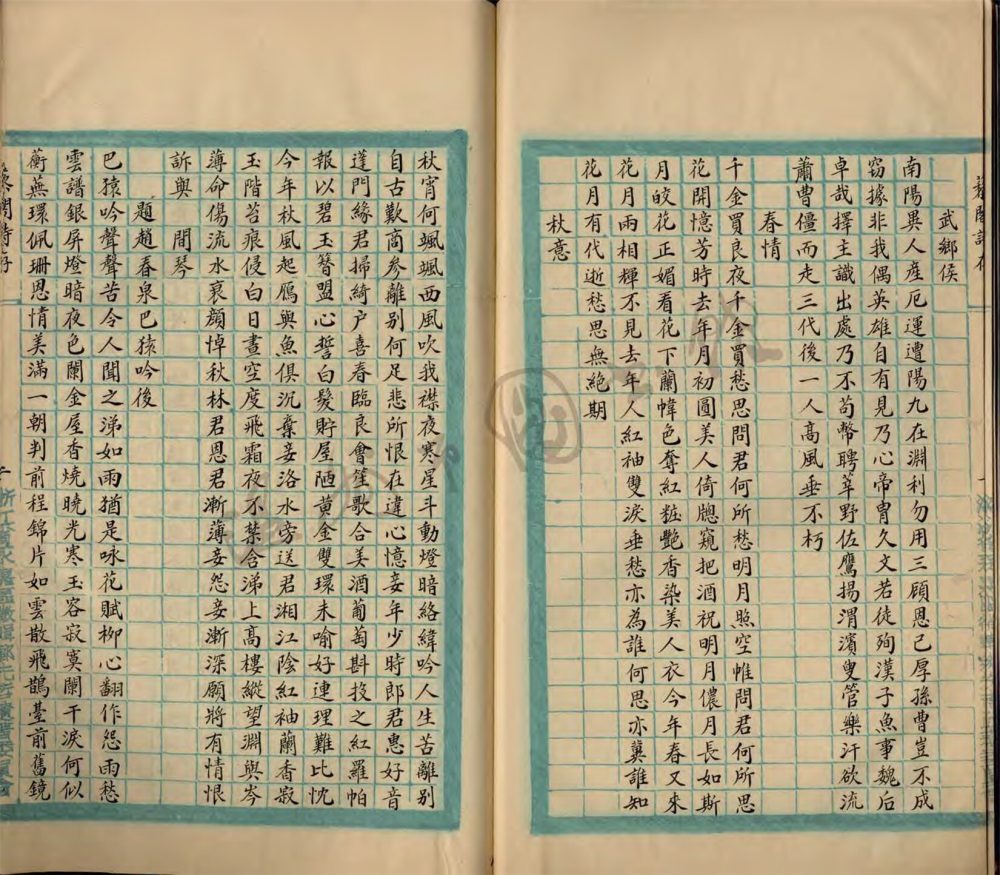 武鄉侯
南陽異人產厄運遭陽九在淵利勿用三顧恩已厚孫曹豈不成
竊據非我偶英雄自有見乃心帝胄久文若徒殉漢子魚事魏后
卓哉擇主識出處乃不苟幣聘莘野佐鷹揚渭濱叟管樂汗欲流
蕭曹僵而走三代後一人高風垂不朽
春情
千金買良夜千金買愁思問君何所愁明月照空帷問君何所思
花開憶芳時去年月初圓美人倚牕窺把酒祝明月儂月長如斯
月皎花正媚看花下蘭幃色奪紅粧艷香染美人衣今年春又來
花月雨相輝不見去年人紅袖雙淚垂愁亦為誰何思亦冀誰知
花月有代逝愁思無絕期
秋意
秋宵何颯颯西風吹我襟夜寒星斗動燈暗絡緯吟人生苦離別
自古歎商參離別何足悲所恨在違心憶妾年少時郎君惠好音
蓬門緣君掃綺户喜春臨良會笙歌合美酒葡萄斟投之紅羅帕
報以碧玉簪盟心誓白髮貯屋陋黃金雙環未喻好連理難比忱
今年秋風起鴈與魚俱沉棄妾洛水旁送君湘江陰紅袖蘭香寂
玉階苔痕侵白日晝空度飛霜夜不禁含涕上高樓縱望淵與岑
薄命傷流水衰顏悼秋林君恩君漸薄妾怨妾漸深願將有情恨
訴與　間琴
題趙春泉巴猿吟後
巴猿吟聲聲苦令人聞之涕如雨猶是咏花賦柳心翻作怨雨愁
雲譜銀屏燈暗夜色闌金屋香燒曉光寒玉容寂寞闌干淚何似
蘅蕪環佩珊恩情美滿一朝判前程錦片如雲散飛鵲臺前舊鏡